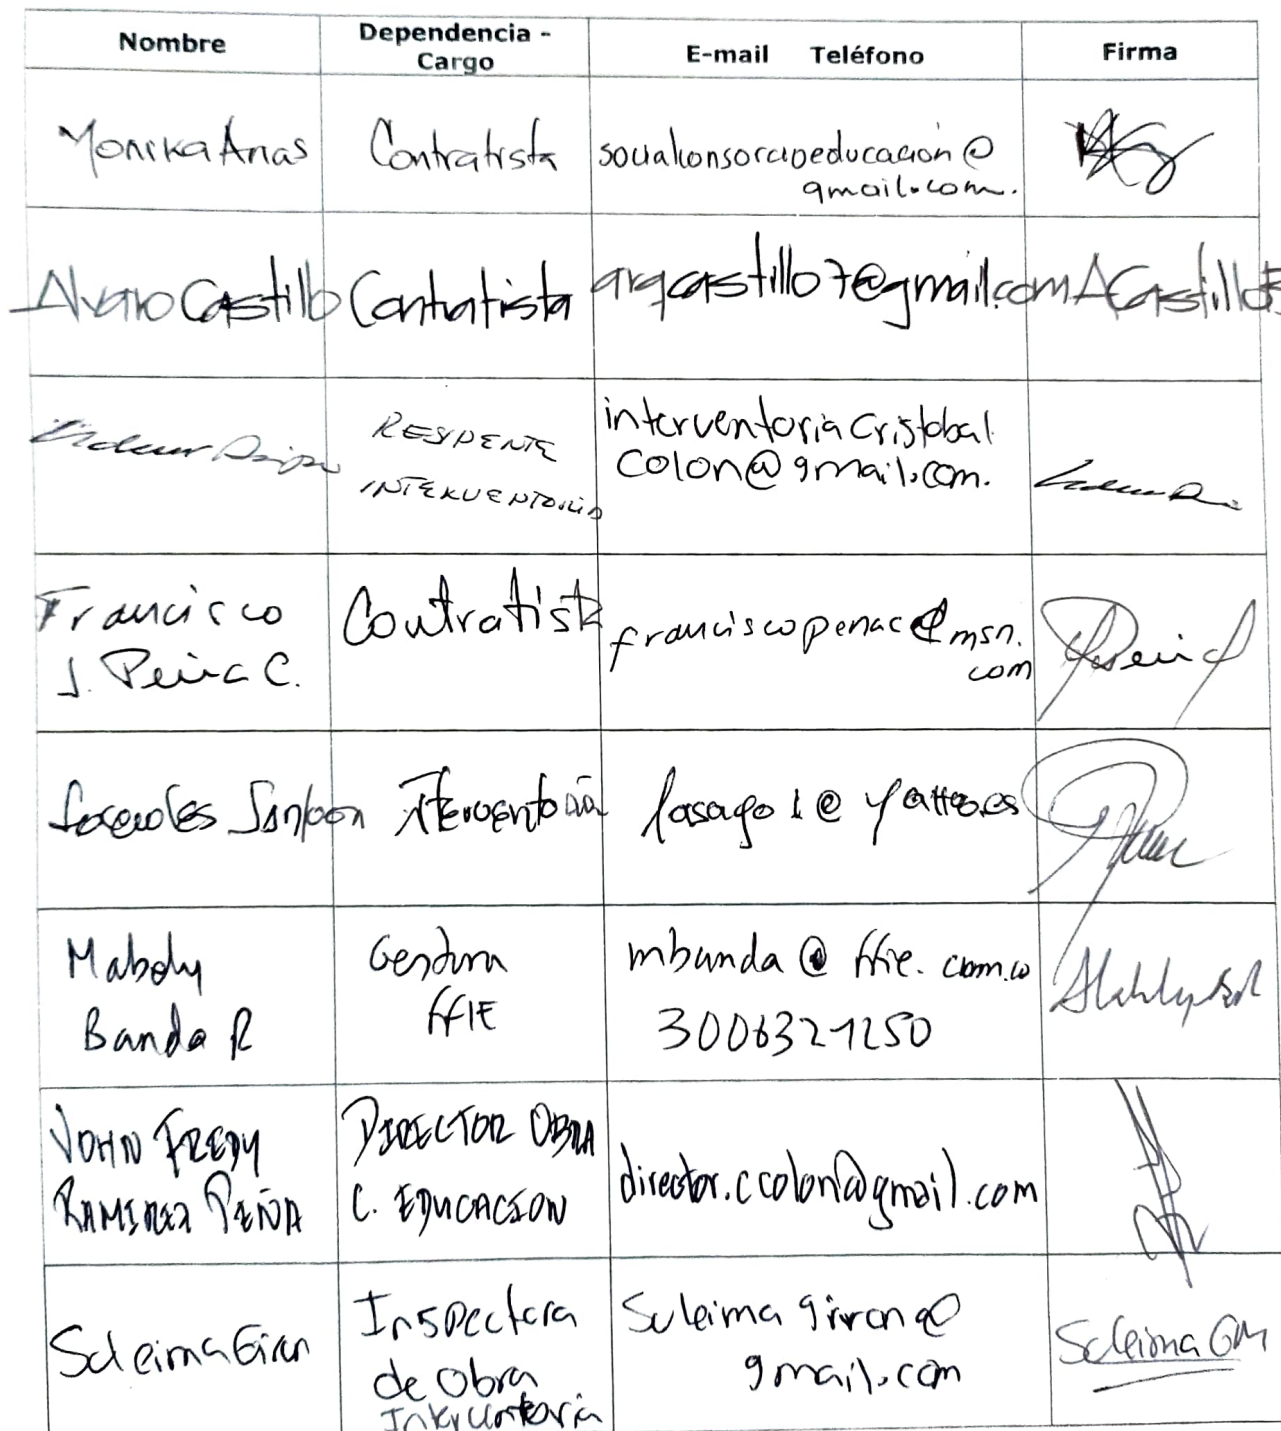 Nombre Dependencia - Cargo E-mail Teléfono Firma
Monika Arias Contratista socialconsorcioeducacion@
gmail.com.
Alvaro Castillo Contratista arqcastillo7@gmail.com ACastillo
RESIDENTE
INTERVENTORIA
interventoria cristobal
colon@gmail.com.
Francisco
J. Peña C.
Contratista
franciscopenac@msn.
com
Interventoria lasago1@yahoo.es
Mabely
Banda R
Gestora
FFIE
mbanda@ffie.com.co
3006321250
JOHN FREDY
RAMIREZ PEÑA
DIRECTOR OBRA
C. EDUCACION
director.ccolon@gmail.com
Suleima Giron
Inspectora
de Obra
Interventoria
Suleimagiron@
gmail.com
Suleima GM